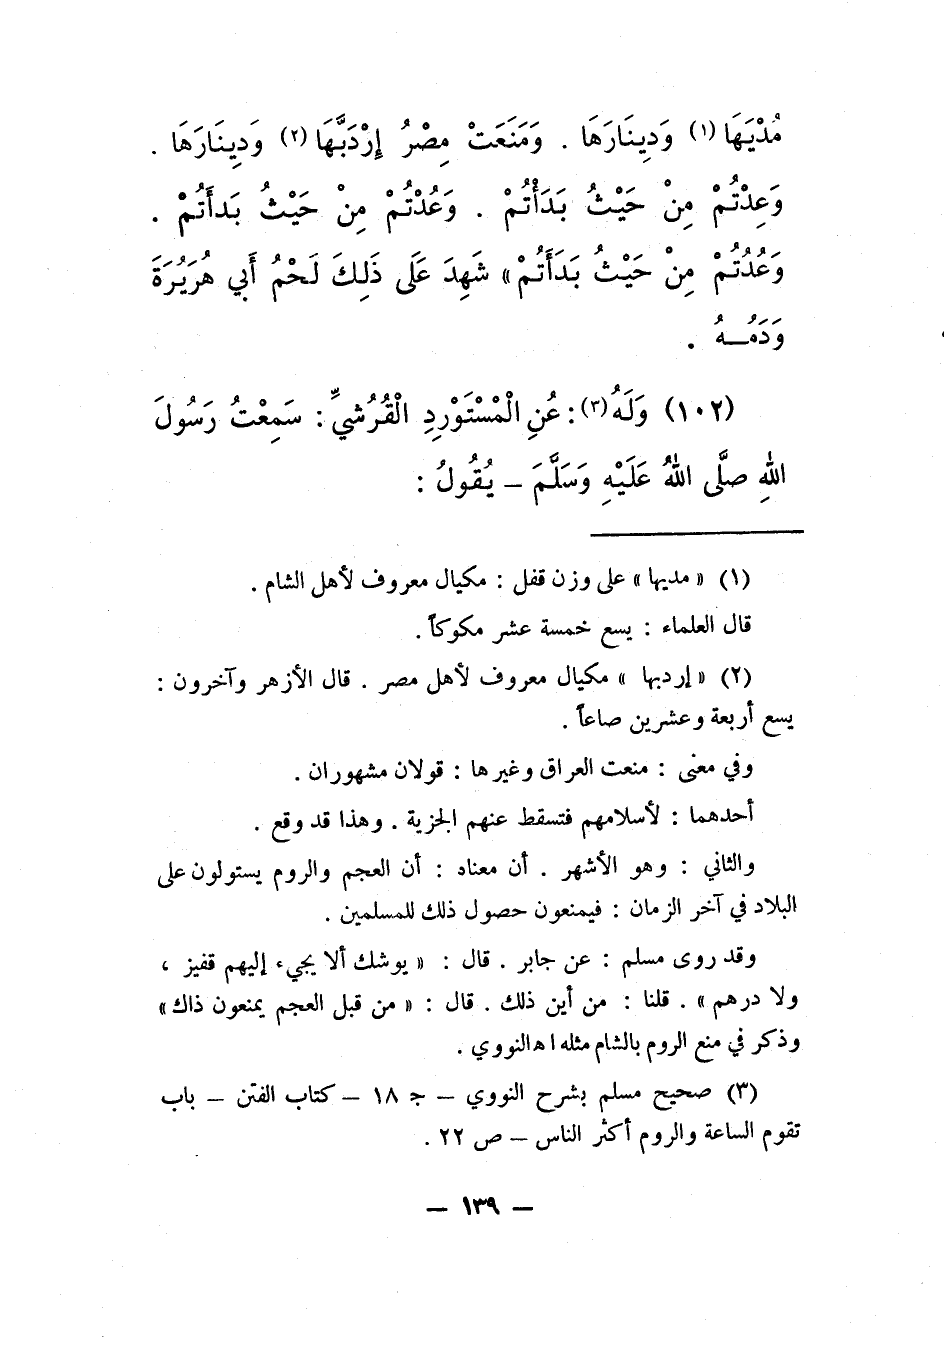 مُدْيَهَا (١) وَدِينَارَهَا . وَمَنَعَتْ مِصْرُ إِرْدَبَّهَا (٢) وَدِينَارَهَا .
وَعِدْتُمْ مِنْ حَيْثُ بَدَأْتُمْ . وَعُدْتُمْ مِنْ حَيْثُ بَدأَتُمْ .
وَعُدْتُمْ مِنْ حَيْثُ بَدَأَتُمْ » شَهِدَ عَلَى ذَلِكَ لَحْمُ أَبي هُرَيُرَةَ
وَدَمُـــهُ .
(١٠٢) وَلَهُ (٣) : عُنِ الْمُسْتَوْرِدِ الْقُرُشيِّ : سَمِعْتُ رَسُولَ
اللهِ صلَّى اللهُ عَلَيْهِ وَسَلَّمَ – يُقُولُ :
(١) « مديها » على وزن قفل : مكيال معروف لأهل الشام .
قال العلماء : يسع خمسة عشر مكوكاً .
(٢) « إردبها » مكيال معروف لأهل مصر . قال الأزهر وآخرون :
يسع أربعة وعشرين صاعاً .
وفي معنى : منعت العراق وغيرها : قولان مشهوران .
أحدهما : لأسلامهم فتسقط عنهم الجزية . وهذا قد وقع .
والثاني : وهو الأشهر . أن معناد : أن العجم والروم يستولون على
البلاد في آخر الزمان : فيمنعون حصول ذلك للمسلمين .
وقد روى مسلم : عن جابر . قال : « يوشك ألا يجيء إليهم قفيز ،
ولا درهم » . قلنا : من أين ذلك . قال : « من قبل العجم يمنعون ذاك »
وذكر في منع الروم بالشام مثله اﻫ النووي .
(٣) صحيح مسلم بشرح النووي – جـ ١٨ – كتاب الفتن – باب
تقوم الساعة والروم أكثر الناس – ص ٢٢ .
– ١٣٩ –